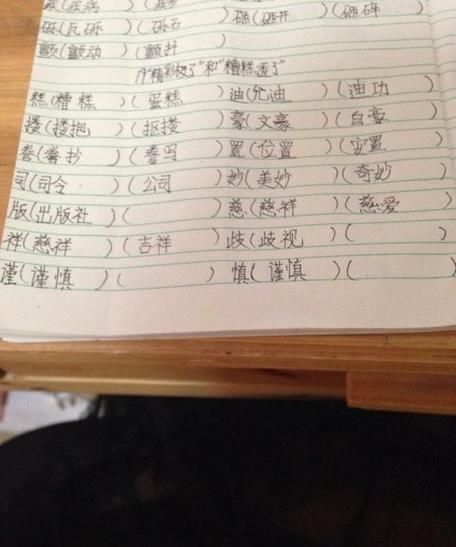 疾(疾病 )( ) 砸(砸开 )(砸碎 )
砾(瓦砾 )(砾石 )
颤(颤动 )(颤抖 )
19"精彩极了"和"糟糕透了"
糕(糟糕 )(蛋糕 ) 油( 油 )(油功 )
搂(搂抱 )(抠搂 ) 豪(文豪 )(自豪 )
誊(誊抄 )(誊写 ) 置(位置 )( 置 )
司(司令 )(公司 ) 妙(美妙 )(奇妙 )
版(出版社 )( ) 慈(慈祥 )(慈爱 )
祥(慈祥 )(吉祥 ) 歧(歧视 )( )
谨(谨慎 )( ) 慎(谨慎 )( )